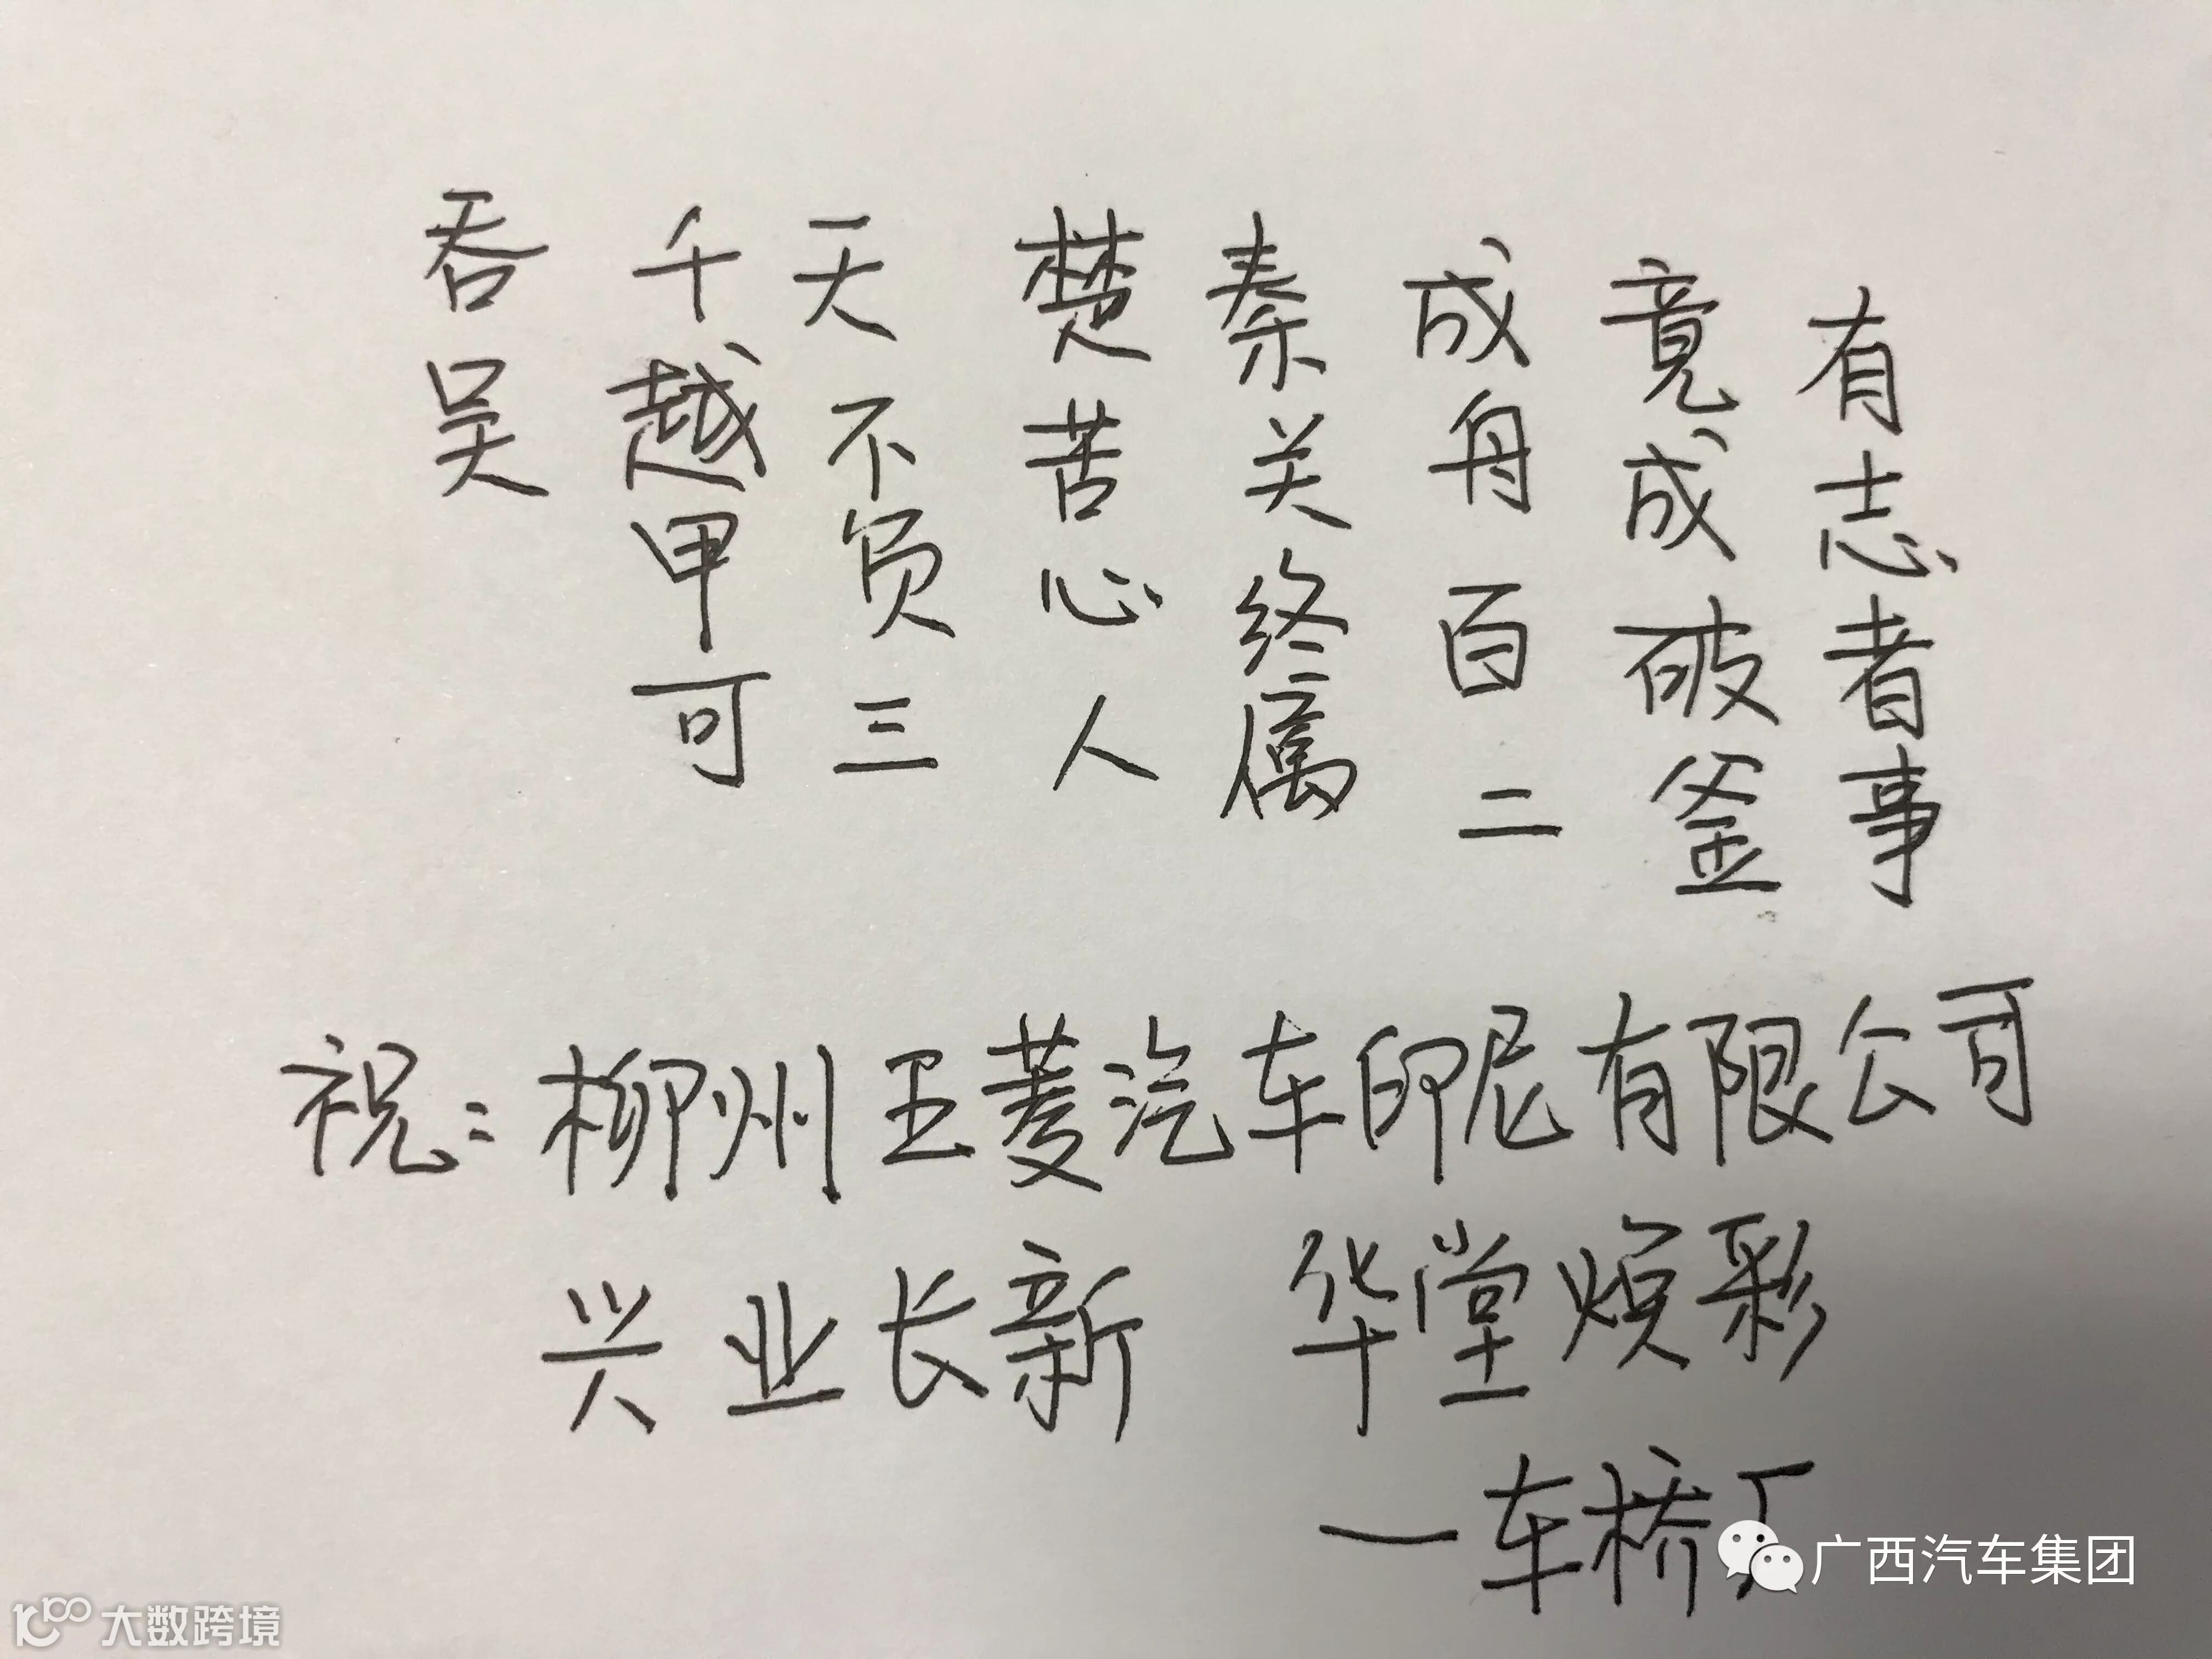 有志者事
竟成破釜
成舟百二
秦关终属
楚苦心人
天不负三
千越甲可
吞吴
祝:柳州五菱汽车印尼有限公司
兴业长新 华堂焕彩
—车桥厂
广西汽车集团
大数跨境